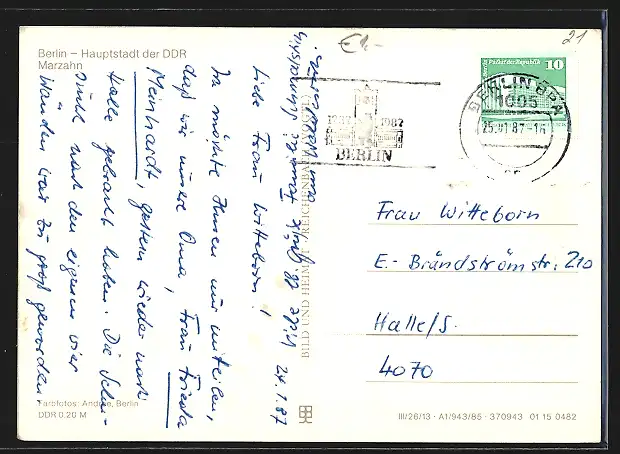 Berlin – Hauptstadt der DDR
Marzahn
€ 1,-
21
10
Palast der Republik
BERLIN BPA
1085
25.-1.87-16
1237 1987
BERLIN
24.1.87
Liebe Frau Witteborn!
Ich möchte Ihnen nur mitteilen,
daß wir unsere Oma, Frau Frieda
Meinhardt, gestern wieder nach
Halle gebracht haben. Die Sehn-
sucht nach den eigenen vier
Wänden war zu groß geworden.
Viele Grüße
Familie
BILD UND HEIMAT REICHENBACH
Frau Witteborn
E.-Brändströmstr. 210
Halle/S.
4070
Farbfotos: André, Berlin
DDR 0,20 M
III/26/13 · A1/943/85 · 370943 01 15 0482